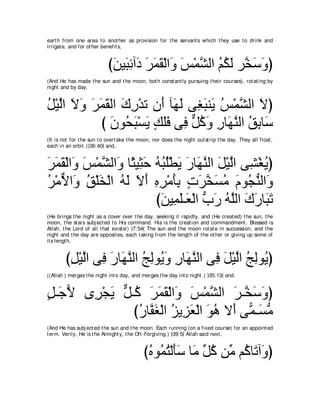 earth from one area to another as provision for the servants which they use to drink and
irrigate, and for other benefits,
(وَسَخَّر لَكُمُ الشَّمْسَ وَالْقَمَرَ دَآئِبَينَ)
(And He has made the sun and the moon, both constantly pursuing their courses), rotating by
night and by day,
(لاَ الشَّمْسُ يَنبَغِى لَهَآ أَن تدْرِكَ القَمَرَ وَلاَ الَّيْلُ
سَابِقُ النَّهَارِ وَكُلٌّ فِى فَلَكٍ يَسْبَحُونَ )
(It is not for the sun to overtake the moon, nor does the night outstrip the day. They all float,
each in an orbit.)(36:40) and,
(يُغْشِى الَّيْلَ النَّهَارَ يَطْلُبُهُ حَثِيثًا وَالشَّمْسَ وَالْقَمَرَ
وَالنُّجُومَ مُسَخَّرَتٍ بِأَمْرِهِ أَلاَ لَهُ الْخَلْقُ وَالاٌّمْرُ
تَبَارَكَ اللَّهُ رَبُّ الْعَـلَمِينَ)
(He brings the night as a cover over the day, seeking it rapidly, and (He created) the sun, the
moon, the stars subjected to His command. His is the creation and commandment. Blessed is
Allah, the Lord of all that exists!) (7:54( The sun and the moon rotate in succession, and the
night and the day are opposites, each taking from the length of the other or giving up some of
its length,
(يُولِجُ الَّيْلَ فِى النَّهَارِ وَيُولِجُ النَّهَارَ فِى الَّيْلِ)
((Allah ) merges the night into day, and merges the day into night.) (35:13( and,
(وَسَخَّـرَ الشَّمْسَ وَالْقَمَرَ كُـلٌّ يَجْرِى لاًّجَـلٍ
مُّسَـمًّى أَلا هُوَ الْعَزِيزُ الْغَفَّارُ)
(And He has subjected the sun and the moon. Each running (on a fixed course) for an appointed
term. Verily, He is the Almighty, the Oft-Forgiving.) (39:5( Allah said next,
(وَآتَاكُم مِّن كُلِّ مَا سَأَلْتُمُوهُ)